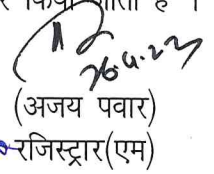 किया जाता है ।
26.4.23
(अजय पवार)
रजिस्ट्रार(एम)